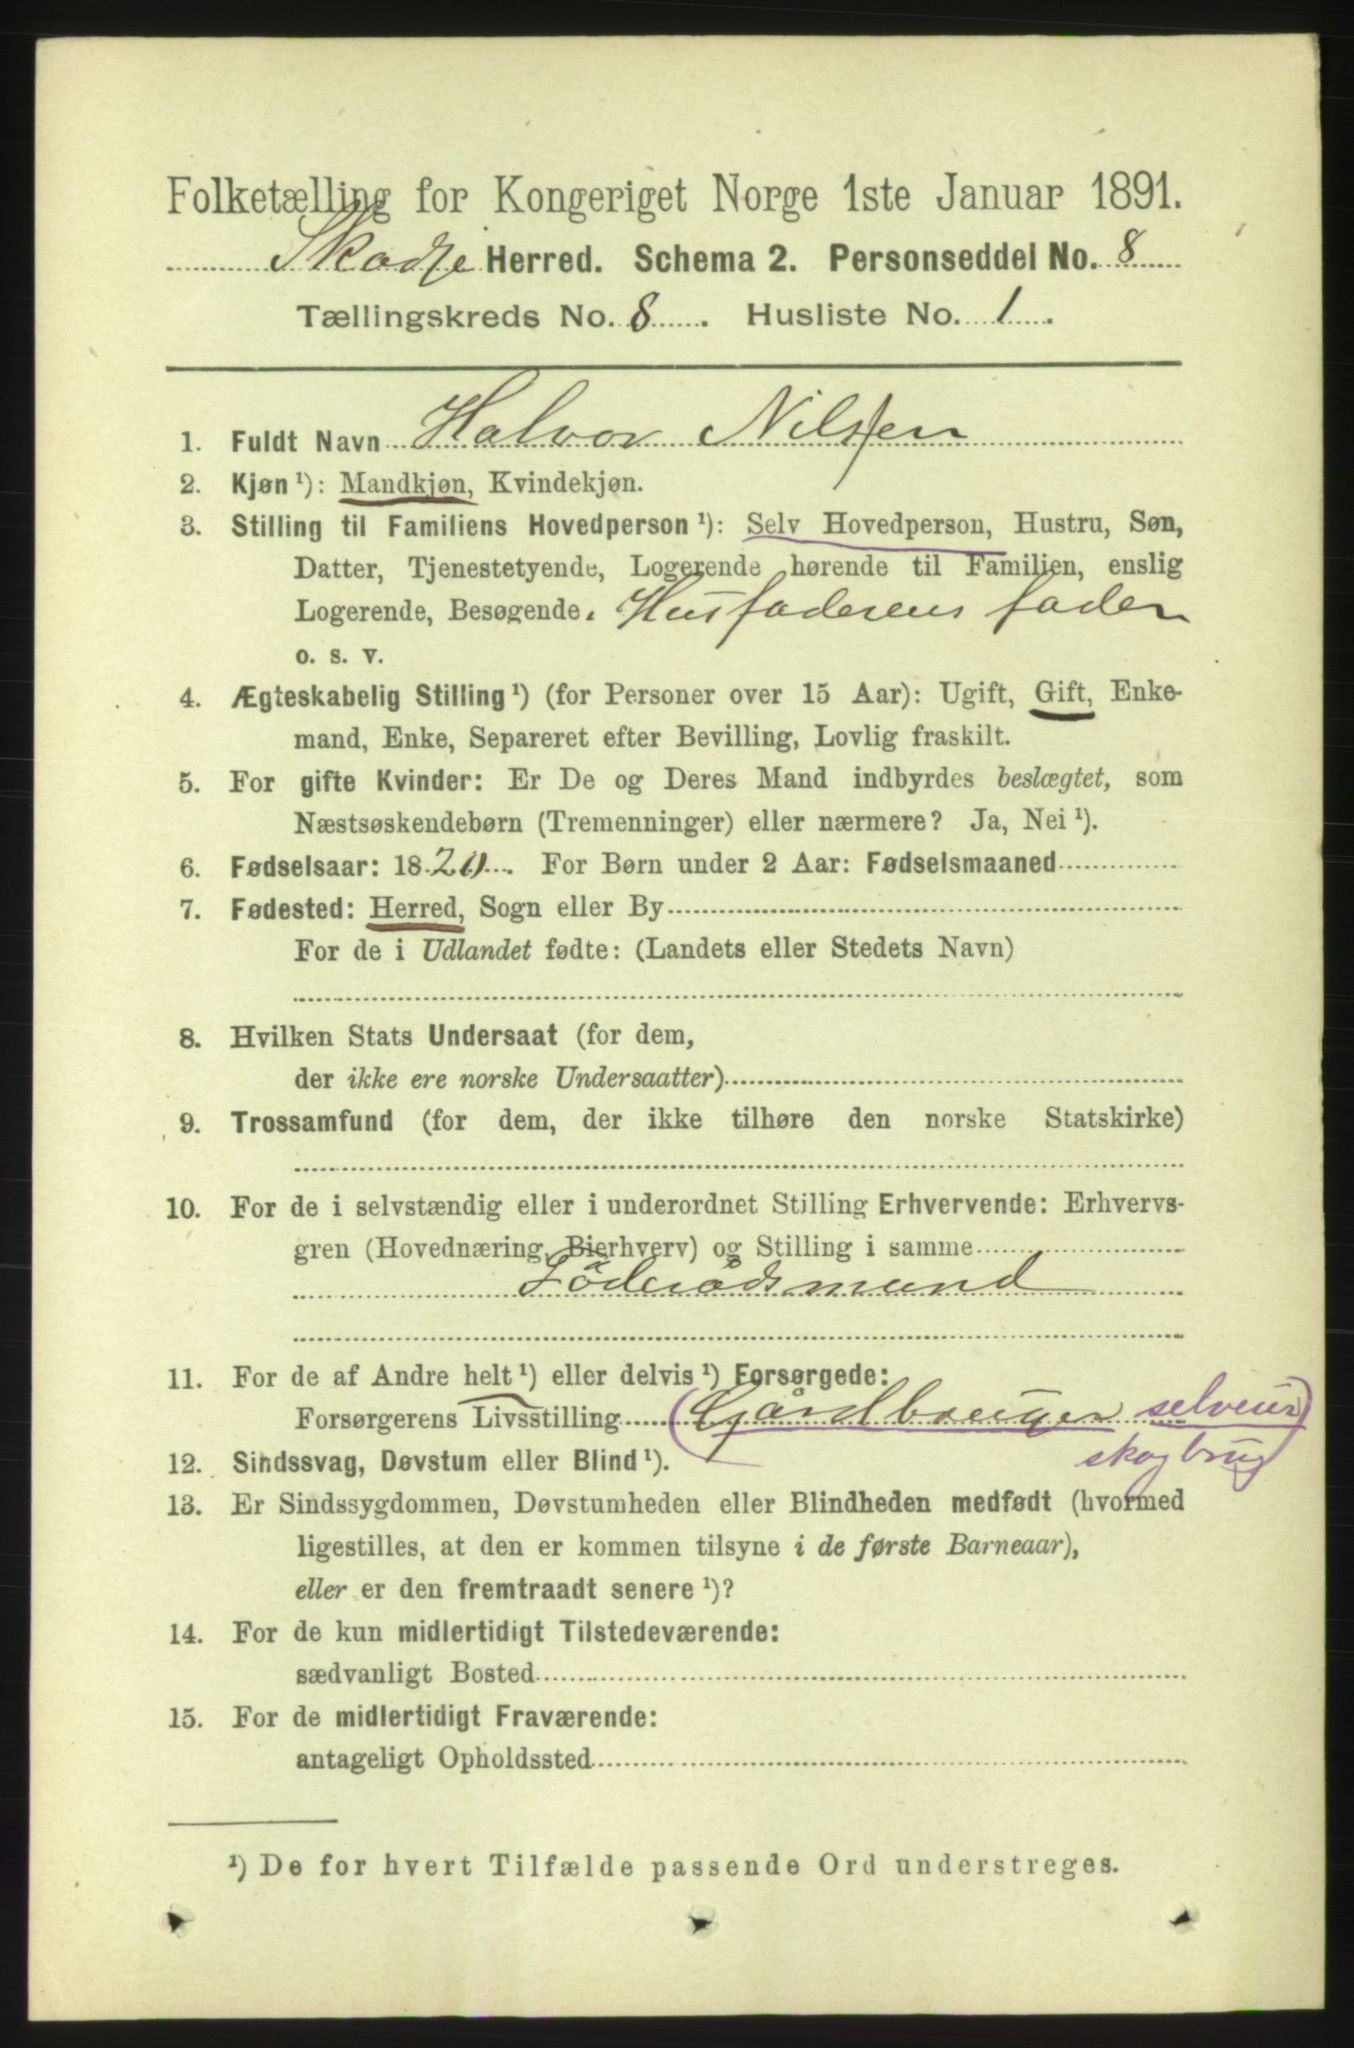 Folketælling for Kongeriget Norge 1ste Januar 1891.
Skodje Herred. Schema 2. Personseddel No. 8
Tællingskreds No. 8. Husliste No. 1.
1. Fuldt Navn Halvor Nilsen
2. Kjøn ¹): Mandkjøn, Kvindekjøn.
3. Stilling til Familiens Hovedperson ¹): Selv Hovedperson, Hustru, Søn,
Datter, Tjenestetyende, Logerende hørende til Familien, enslig
Logerende, Besøgende. Husfaderens fader
o. s. v.
4. Ægteskabelig Stilling ¹) (for Personer over 15 Aar): Ugift, Gift, Enke-
mand, Enke, Separeret efter Bevilling, Lovlig fraskilt.
5. For gifte Kvinder: Er De og Deres Mand indbyrdes beslægtet, som
Næstsøskendebørn (Tremenninger) eller nærmere? Ja, Nei ¹).
6. Fødselsaar: 1820. For Børn under 2 Aar: Fødselsmaaned
7. Fødested: Herred, Sogn eller By
For de i Udlandet fødte: (Landets eller Stedets Navn)
8. Hvilken Stats Undersaat (for dem,
der ikke ere norske Undersaatter)
9. Trossamfund (for dem, der ikke tilhøre den norske Statskirke)
10. For de i selvstændig eller i underordnet Stilling Erhvervende: Erhvervs-
gren (Hovednæring, Bierhverv) og Stilling i samme
Föderådsmand
11. For de af Andre helt ¹) eller delvis ¹) Forsørgede:
Forsørgerens Livsstilling (Gårdbruger selveier)
skogbrug
12. Sindssvag, Døvstum eller Blind ¹).
13. Er Sindssygdommen, Døvstumheden eller Blindheden medfødt (hvormed
ligestilles, at den er kommen tilsyne i de første Barneaar),
eller er den fremtraadt senere ¹)?
14. For de kun midlertidigt Tilstedeværende:
sædvanligt Bosted
15. For de midlertidigt Fraværende:
antageligt Opholdssted
¹) De for hvert Tilfælde passende Ord understreges.